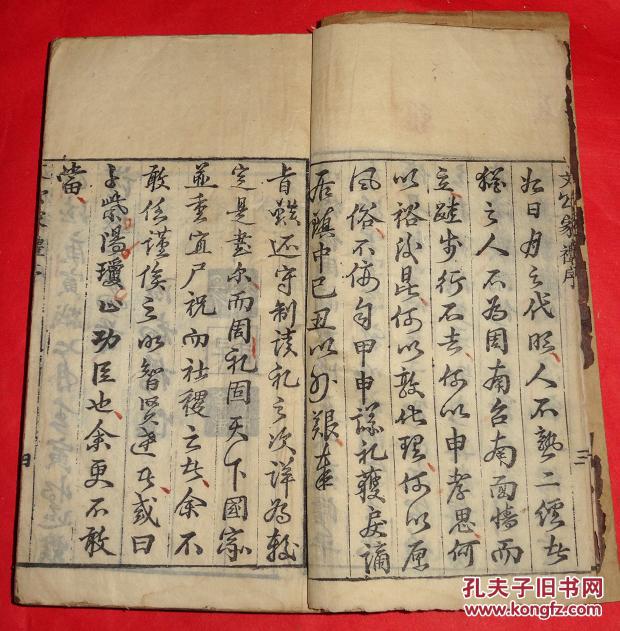 文公家禮序
三
日月之代照人不熟二經者
猶之人不為周南召南面墻而
立跬步行不去何以申孝思何
以裕後昆何以敦化理何以厚
風俗不佞甲申礼獲戾謫
居滇中己丑以外艱奉
旨还守制讀礼之次詳為較
定是書尔而周礼固天下國家
並重宜尸祝而社稷之者余不
敢任謹俟之明智賢達者或曰
子紫陽瓊山功臣也余更不敢
當
孔夫子旧书网
www.kongfz.com